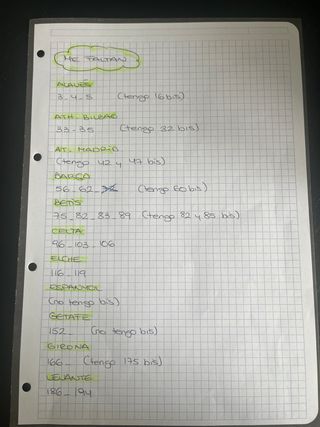 ME FALTAN
ALAVÉS
3-4-5 (tengo 16 bis)
ATH. BILBAO
33-35 (tengo 32 bis)
AT. MADRID
(tengo 42 y 47 bis)
BARÇA
56-62- (tengo 60 bis)
BETIS
75-82-83-89 (tengo 82 y 85 bis)
CELTA
96-103-106
ELCHE
116-119
ESPANYOL
(no tengo bis)
GETAFE
152- (no tengo bis)
GIRONA
166- (tengo 175 bis)
LEVANTE
186-194